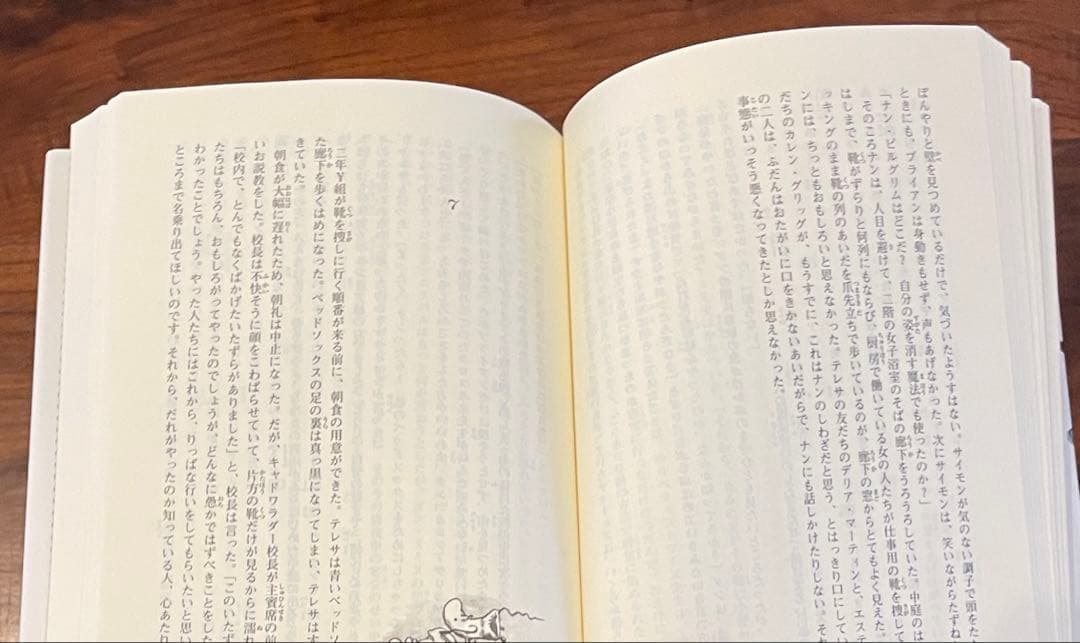 ぼんやりと壁を見つめているだけで、気づいたようすはない。サイモンが気のない調子で頭をた
ときにも、ブライアンは身動きもせず、声もあげなかった。次にサイモンは、笑いながらたずね
「ナン・ピルグリムはどこだ？　自分の姿を消す魔法でも使ったのか？」
そのころナンは、人目を避けて、二階の女子浴室のそばの廊下をうろうろしていた。中庭のは
はしまで、靴がずらりと何列にもならび、厨房で働いている女の人たちが仕事用の靴を捜して
ッキングのまま靴の列のあいだを爪先立ちで歩いているのが、廊下の窓からとてもよく見えた。
ンには、ちっともおもしろいと思えなかった。テレサの友だちのデリア・マーティンと、エステ
たちのカレン・グリッグが、もうすでに、これはナンのしわざだと思う、とはっきり口にしてい
の二人は、ふだんはおたがいに口をきかないあいだがらで、ナンにも話しかけたりしない。そ
事態がいっそう悪くなってきたとしか思えなかった。
7
二年Y組が靴を捜しに行く順番が来る前に、朝食の用意ができた。テレサは青いベッドソ
た廊下を歩くはめになった。ベッドソックスの足の裏は真っ黒になってしまい、テレサはす
きていた。
朝食が大幅に遅れたため、朝礼は中止になった。だが、キャドワラダー校長が主賓席の前
いお説教をした。校長は不快そうに顔をこわばらせていて、片方の靴だけが見るからに濡れ
「校内で、とんでもなくばかげたいたずらがありました」と、校長は言った。「このいたず
たちはもちろん、おもしろがってやったのでしょうが、どんなに愚かではずべきことをした
わかったことでしょう。やった人たちにはこれから、りっぱな行いをしてもらいたいと思い
ところまで名乗り出てほしいのです。それから、だれがやったのか知っている人、心あたり